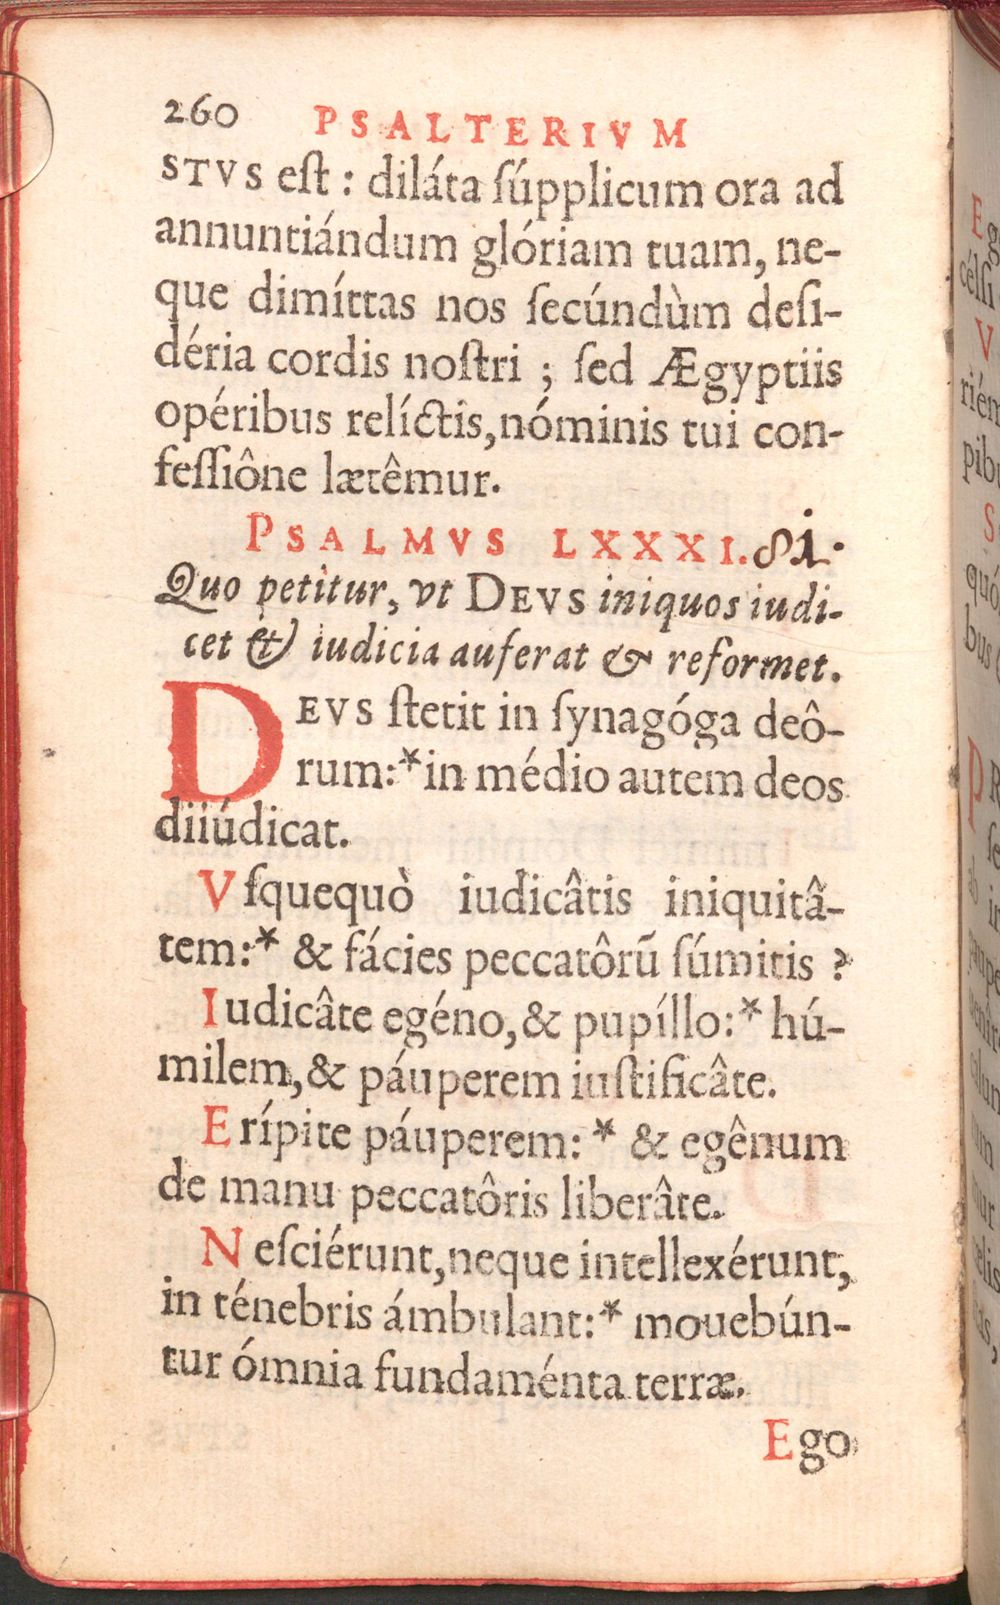 260 PSALTERIVM
STVS eſt : diláta ſúpplicum ora ad
annuntiándum glóriam tuam, ne-
que dimíttas nos ſecúndùm deſi-
déria cordis noſtri ; ſed Ægyptiis
opéribus relíctis, nóminis tui con-
feſſiône lætêmur.
PSALMVS LXXXI. 81.
Quo petitur, vt DEVS iniquos iudi-
cet & iudicia auferat & reformet.
DEVS ſtetit in ſynagóga deô-
rum:* in médio autem deos
diiúdicat.
Vſquequò iudicâtis iniquitâ-
tem:* & fácies peccatôrũ ſúmitis ?
Iudicâte egéno, & pupíllo:* hú-
milem, & páuperem iuſtificâte.
Erípite páuperem: * & egênum
de manu peccatôris liberâte.
Neſciérunt, neque intellexérunt,
in ténebris ámbulant:* mouebún-
tur ómnia fundaménta terræ.
Ego